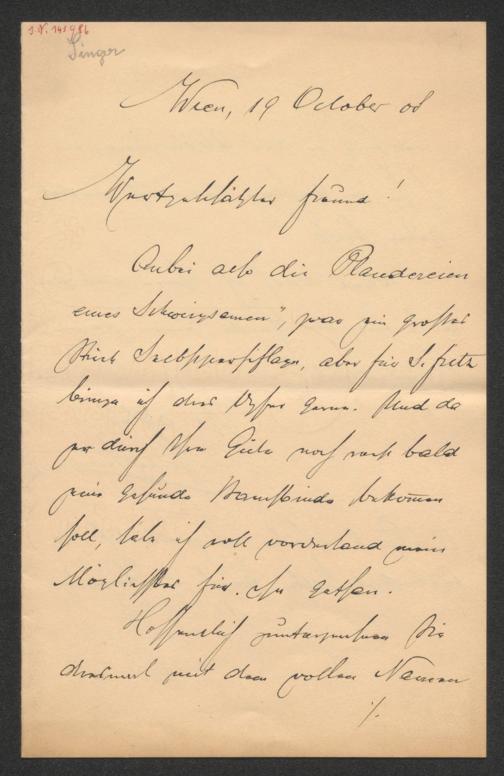 I.N. 145986
Singer
Wien, 19 October 08
Wertgeschätzter Freund!
Anbei also die Plaudereien
eines Schweigsamen", zwar ein großes
Stück, aber für S. Fritz
bringe ich dies Opfer gerne. Und da
er durch Ihre Güte noch recht bald
eine gesunde bekommen
soll, habe ich wohl vorderhand mein
Möglichstes für ihn gethan.
Hoffentlich unterzeichnen Sie
diesmal mit dem vollen Namen
./.